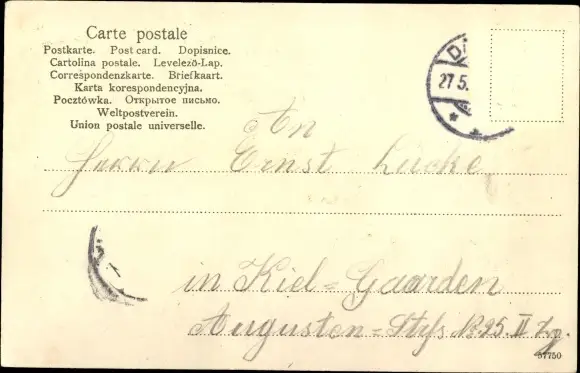 Carte postale
Postkarte. Post card. Dopisnice.
Cartolina postale. Levelező-Lap.
Correspondenzkarte. Briefkaart.
Karta korespondencyjna.
Pocztówka. Открытое письмо.
Weltpostverein.
Union postale universelle.
27.5.
An
Herrn Ernst Lücke
in Kiel=Gaarden
Augusten=Strß No. 25. II
57750